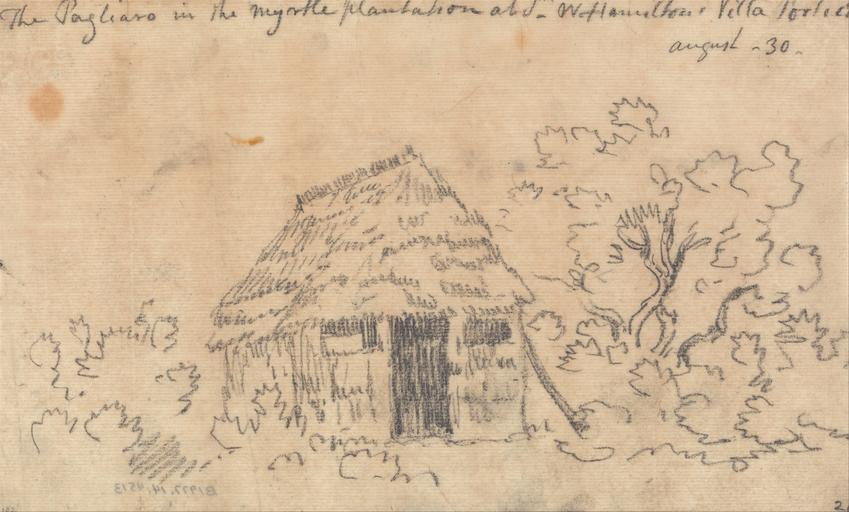 The Pagliaro in the myrtle plantation at Sr. W. Hamiltons Villa Portici
august - 30 -
B1977.14.4513
2